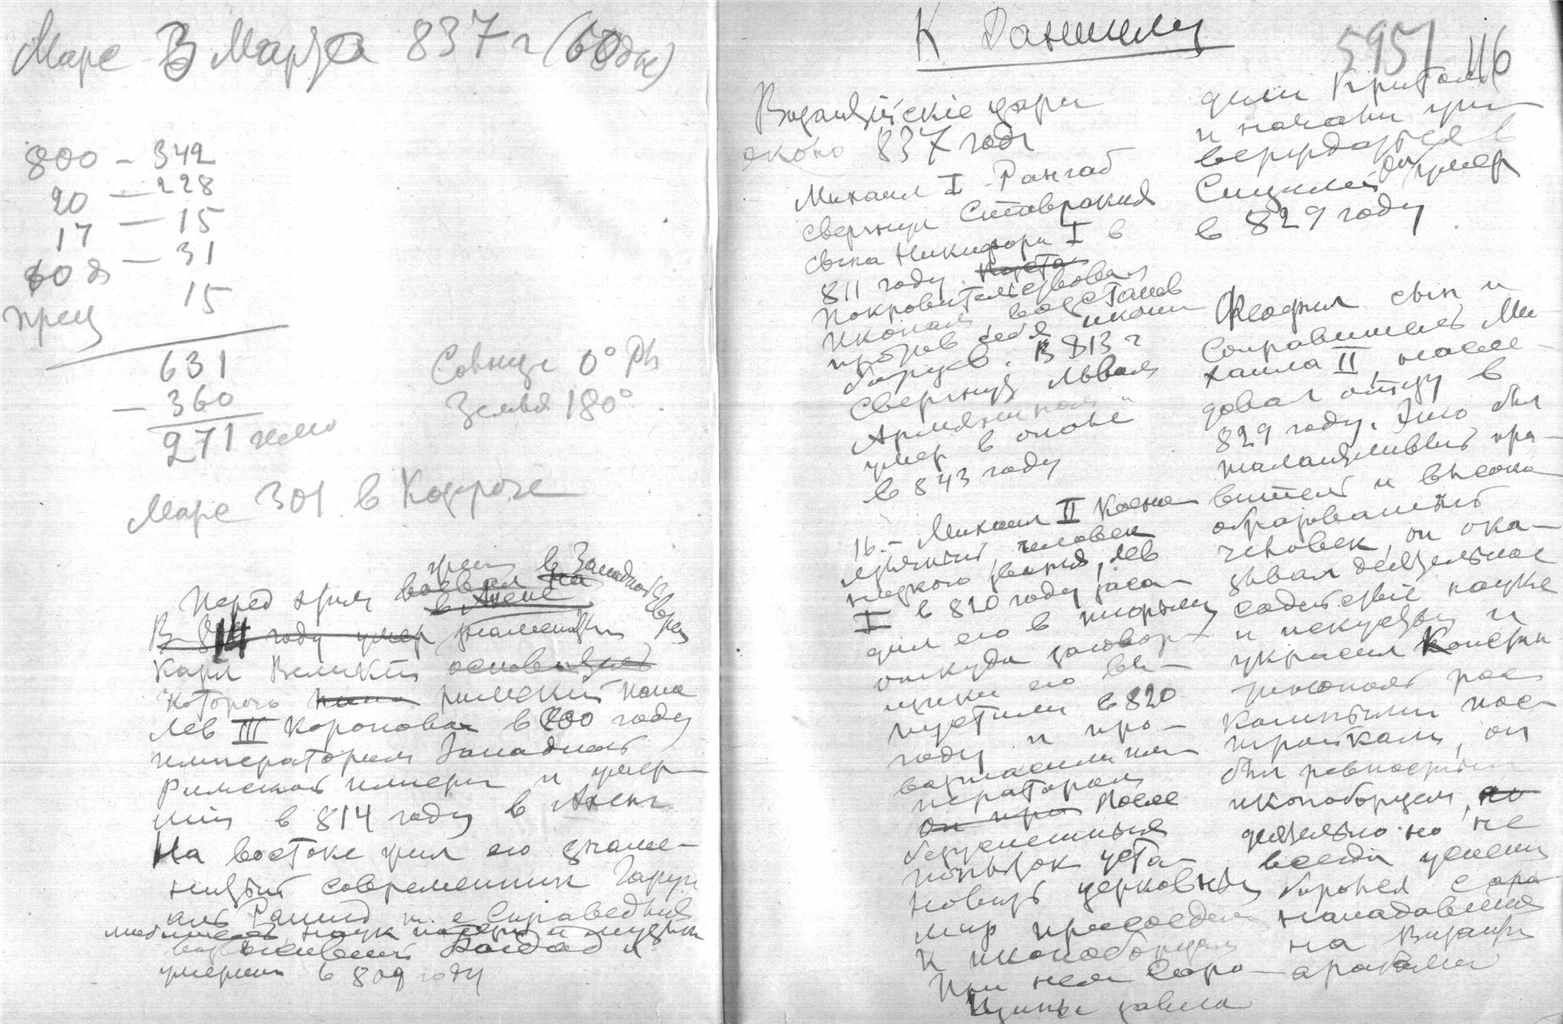 Марс В Марза 837 г (60 дн)
800 – 342
20 – 228
17 – 15
60 д – 31
прец 15
631
– 360
271 гелио
Солнце 0° Рh
Земля 180°
Марс 301 в Козероге
Перед этим в Западной Европе
в Ахене
В 814 году умер знаменитый
Карл Великий основатель
которого римский папа
Лев III короновал в 800 году
императором Западной
Римской империи и умер-
ший в 814 году в Ахене
На востоке жил его знаме-
нитый современник Гарун
аль Рашид т. е Справедливый
любитель наук
Багдад и
умерший в 809 году
К Даниилу
5951 116
Византийские цари
около 837 года
Михаил I Рангаб
свергнул Ставракия
сына Никифора I в
811 году.
покровительствовал
иконам восстанов
против себя иконо
борцев. В 813 г
свергнут Львом
Армянином
умер в опале
в 843 году
16. – Михаил II Косно
язычный человек
низкого звания, Лев
I в 820 году заса
дил его в тюрьму
откуда заговор
щики его вы–
пустили в 820
году и про–
возгласили им
ператором
После
безуспешных
попыток уста–
новить церковный
мир присоедин
к иконоборцам
При нем Сара–
цины завла
дели Критом
и начали ут
верждаться в
Сицилии Он умер
в 829 году
Феофил сын и
соправитель Ми
хаила II, насле–
довал отцу в
829 году. Это был
талантливый пра–
витель и высоко
образованный
человек, он ока–
зывал деятельное
содействие науке
и искусству и
украсил Констан
тинополь рос
кошными пос–
тройками, он
был ревностным
иконоборцем, но
деятельно но не
всегда успешн
боролся с ара
нападавшими
на Визант
арабами